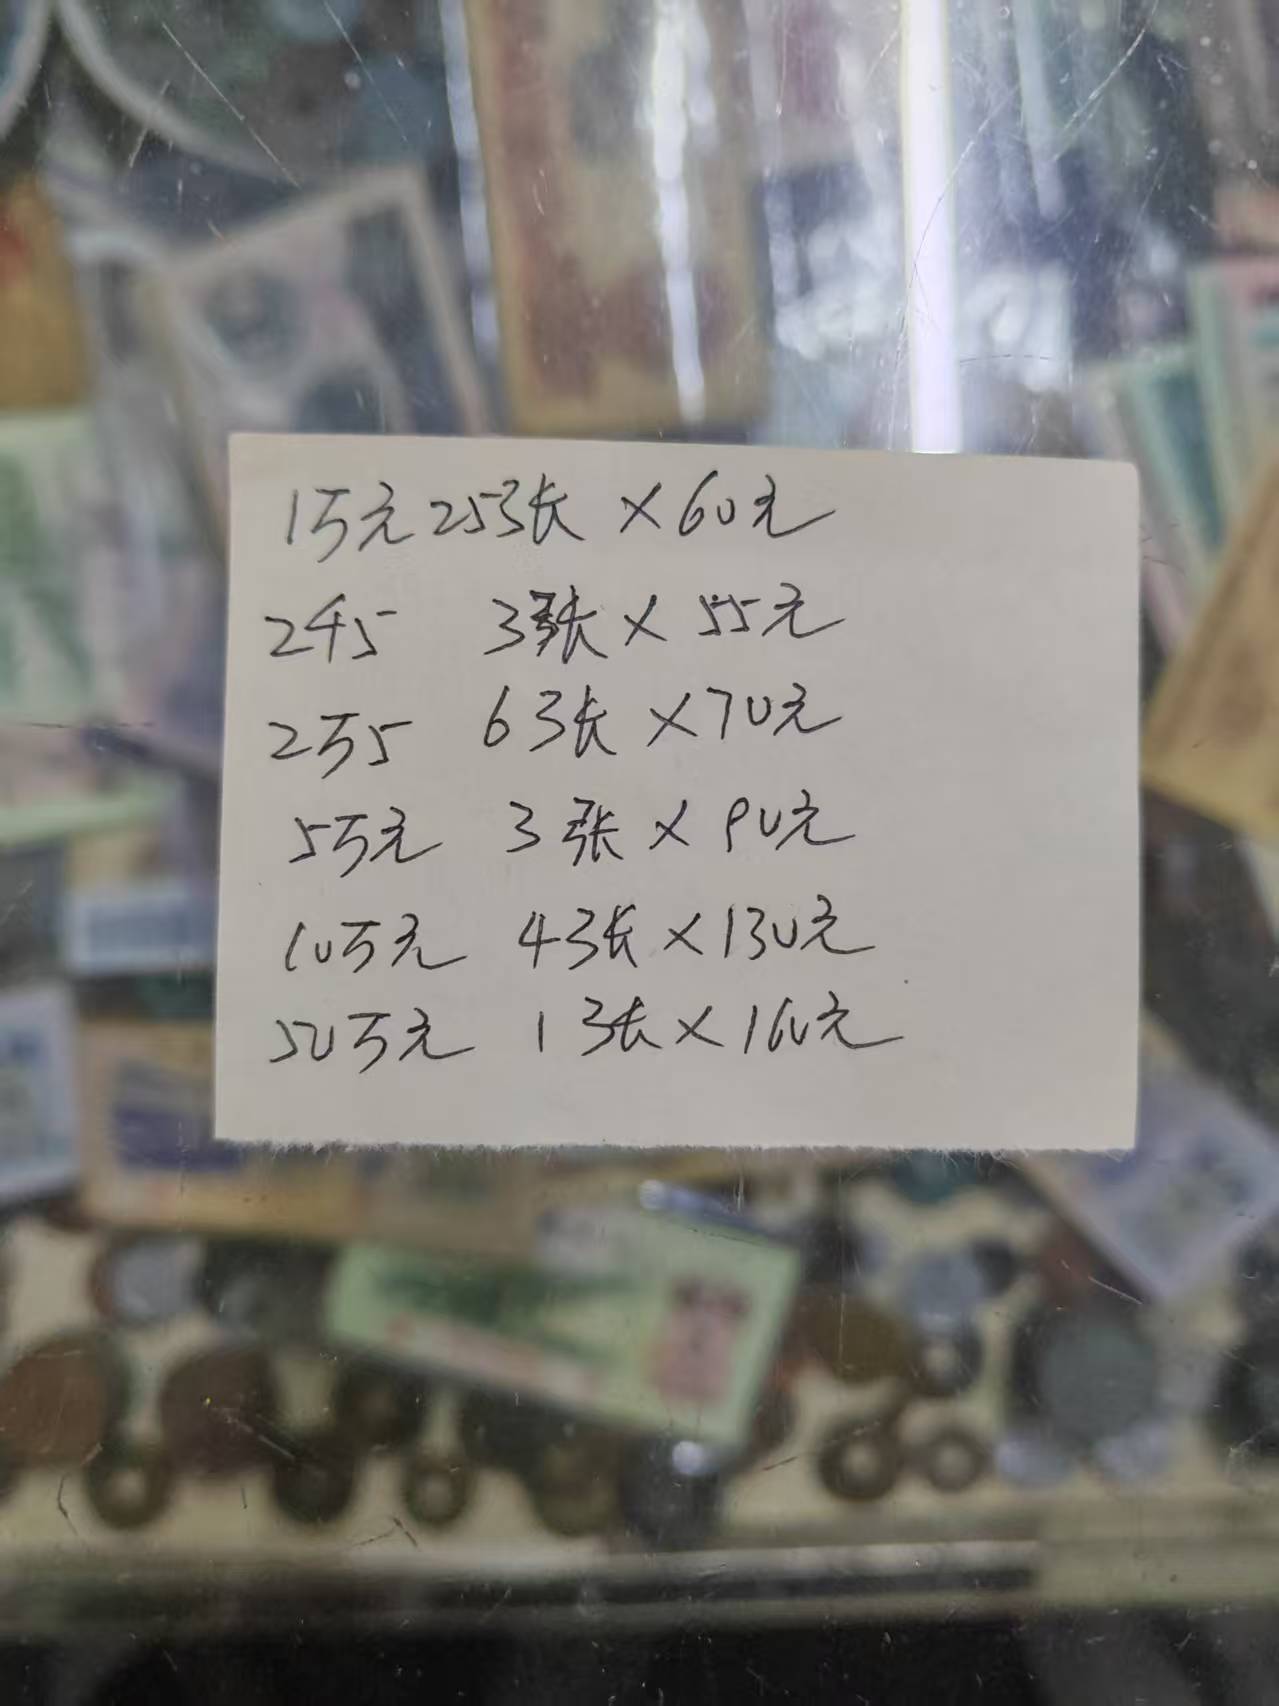 1万元 25张 × 60元
2千5 3张 × 55元
2万5 6张 × 70元
5万元 3张 × 90元
10万元 4张 × 130元
50万元 1张 × 160元